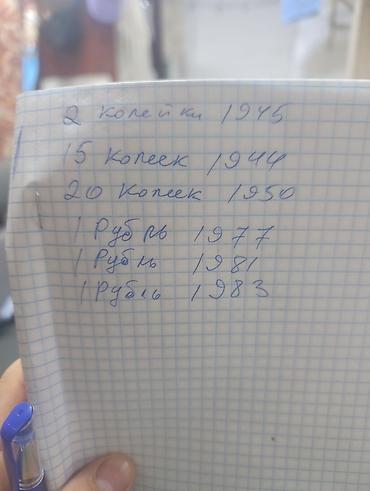 2 копейки 1945
15 копеек 1944
20 копеек 1950
1 Рубль 1977
1 Рубль 1981
1 Рубль 1983